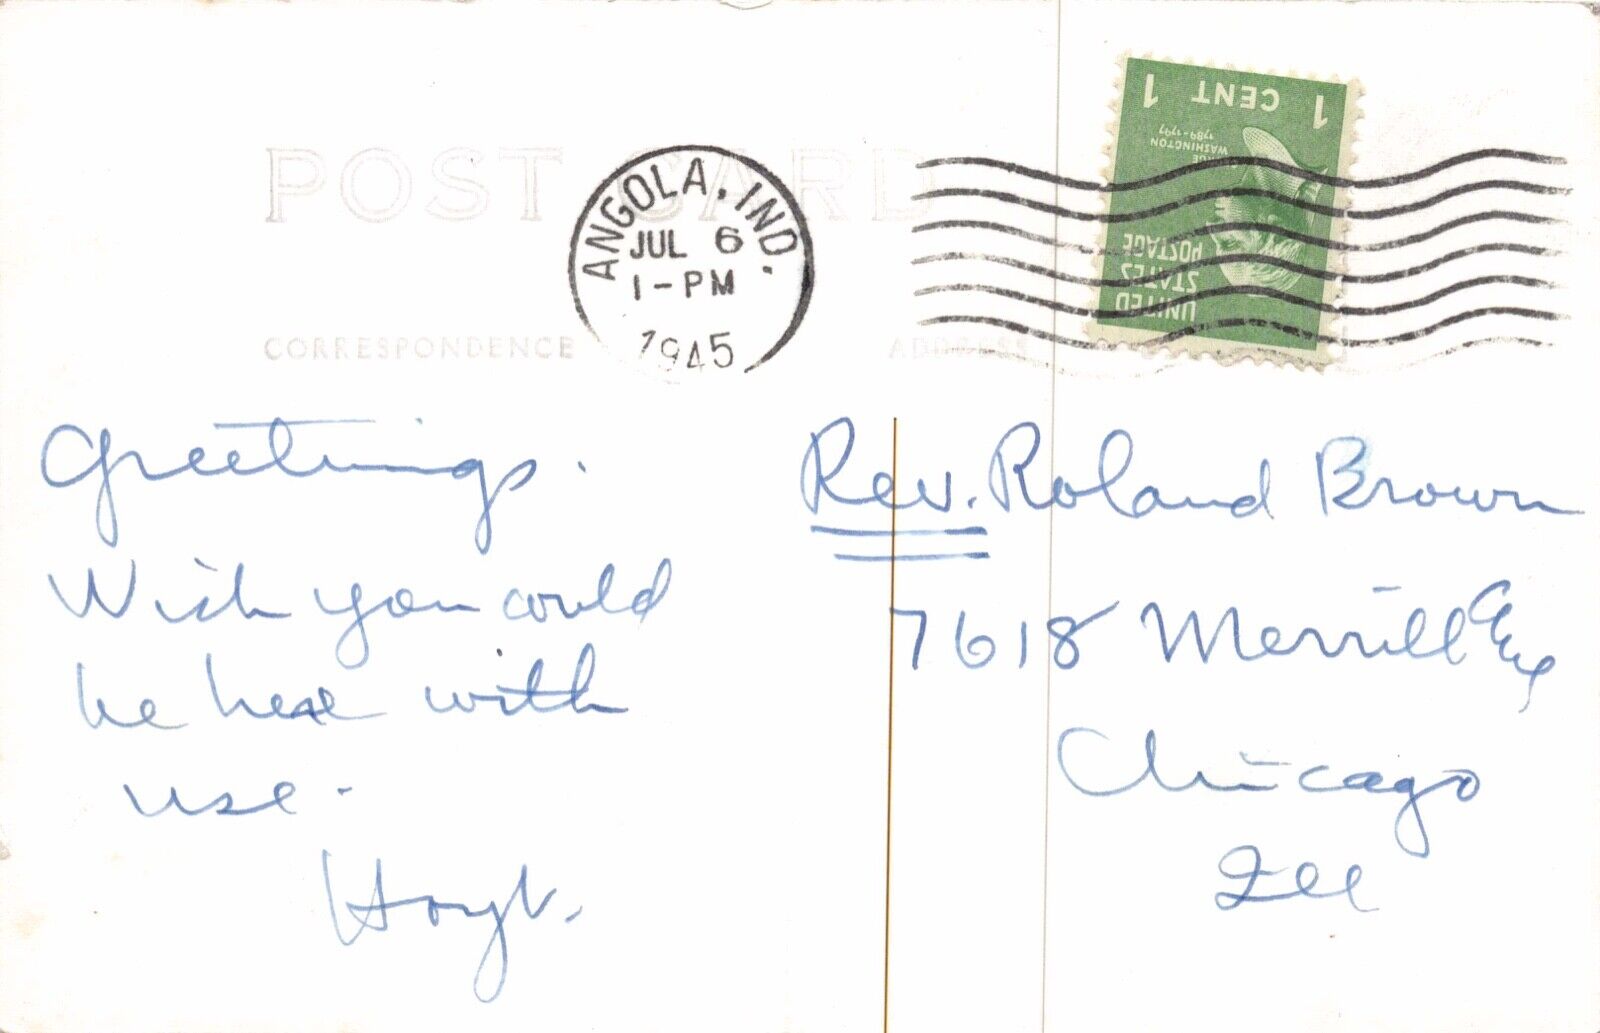 POST CARD
ANGOLA, IND.
JUL 6
1-PM
1945
1 CENT 1
WASHINGTON
1789-1797
UNITED
STATES
POSTAGE
CORRESPONDENCE
ADDRESS
Greetings.
Wish you could
be here with
use.
Hoyt.
Rev. Roland Brown
7618 Merrill Ave
Chicago
Ill